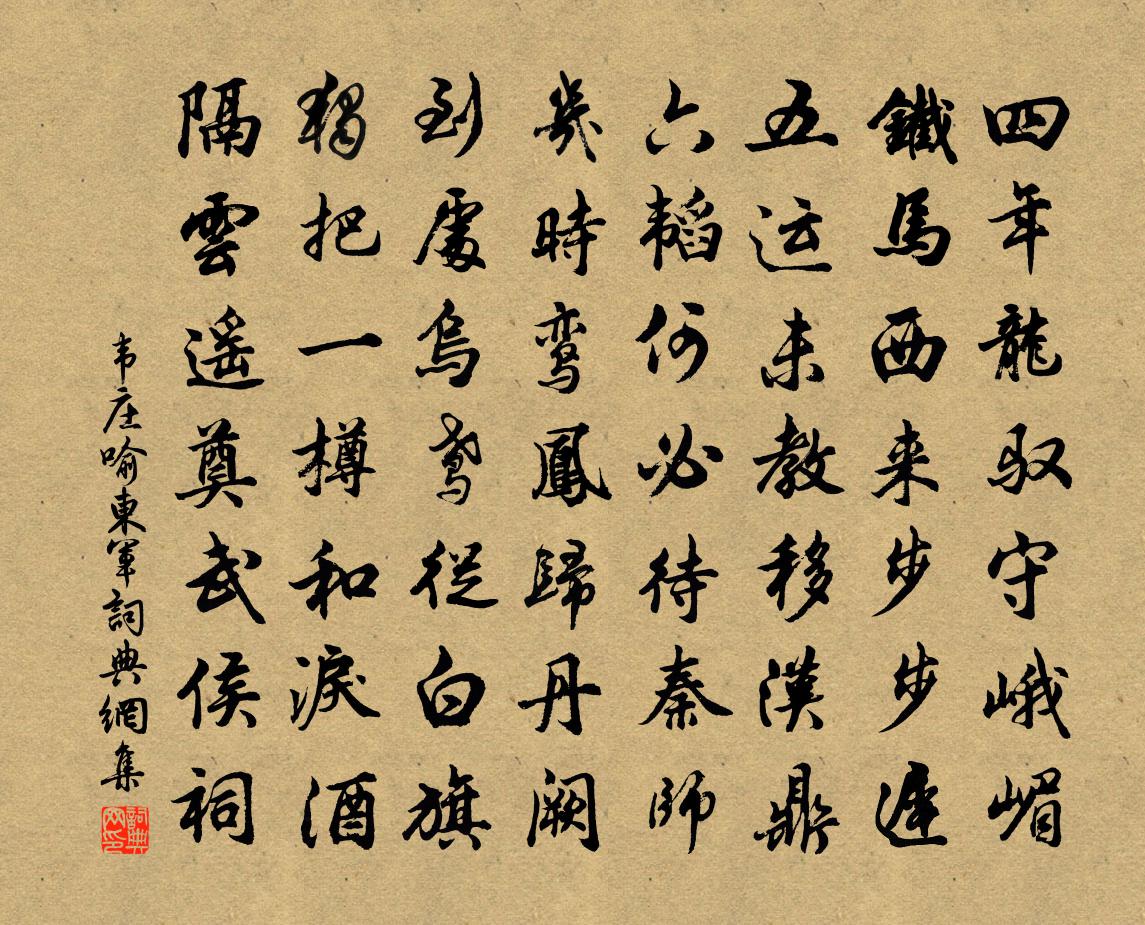 四年龍驭守峨嵋
鐵馬西来步步遲
五运未教移漢鼎
六韬何必待秦師
幾時鸾鳳歸丹阙
到處烏鸢從白旗
獨把一樽和淚酒
隔雲遥奠武侯祠
韦庄喻東軍詞典網集
詞典网印